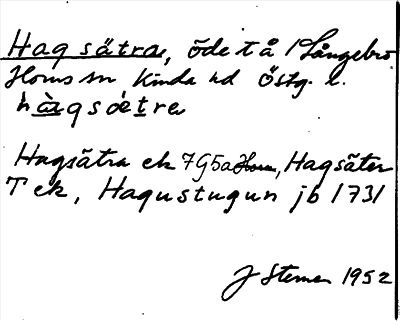 Hagsätra, öde t å Långebro
Horns sn Kinda hd Östg. l.
hàgsǿtra
Hagsätra ek 7G5a Horn, Hagsäter
T ek, Hagustugun jb 1731
J Sterner 1952